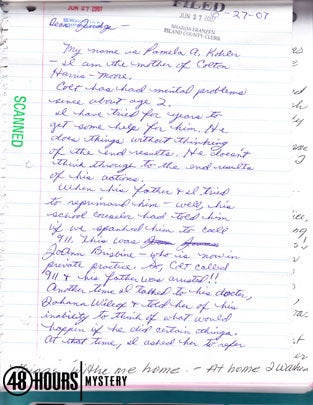 FILED
JUN 27 2007
6-27-07
JUN 27 2007
SHARON FRANZEN
ISLAND COUNTY CLERK
Dear Judge -
My name is Pamela A. Kohler
- I am the mother of Colton
Harris - Moore.
Colt has had mental problems
since about age 2.
I have tried for years to
get some help for him. He
does things without thinking
of the end results. He doesn't
think through to the end results
of his actions.
When his father & I tried
to reprimand him - well, his
school counselor had told him
if we spanked him to call
911. This was
JoAnn Brisbine - who is now in
private practice. So, Colt called
911 & his father was arrested!!
Another time I talked to his doctor,
Johana Wilcox & told her of his
inability to think of what would
happen if he did certain things.
At that time, I asked her to refer
me home. - At home I
SCANNED
48 HOURS
MYSTERY